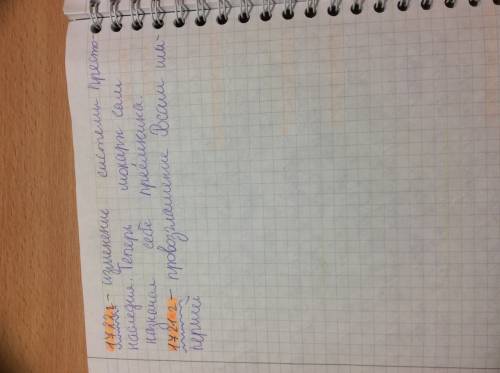 1722г - изменение системы престо-
наследия. Теперь монарх сам
назначал себе преемника.
1721г - провозглашение России им-
перией